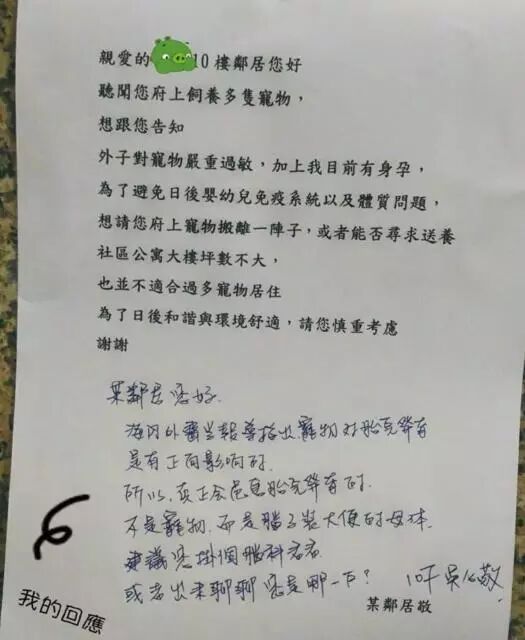 親愛的10樓鄰居您好
聽聞您府上飼養多隻寵物，
想跟您告知
外子對寵物嚴重過敏，加上我目前有身孕，
為了避免日後嬰幼兒免疫系統以及體質問題，
想請您府上寵物搬離一陣子，或者能否尋求送養
社區公寓大樓坪數不大，
也並不適合過多寵物居住
為了日後和諧與環境舒適，請您慎重考慮
謝謝
某鄰居您好.
海內外醫學報導指出,寵物对胎兒發育
是有正面影响的.
所以,真正会危息胎兒發育的.
不是寵物,而是腦子裝大便的母体.
建議您掛個腦科看看
或者出來聊聊您是哪一户? 10F 吳 敬
某鄰居敬
我的回應